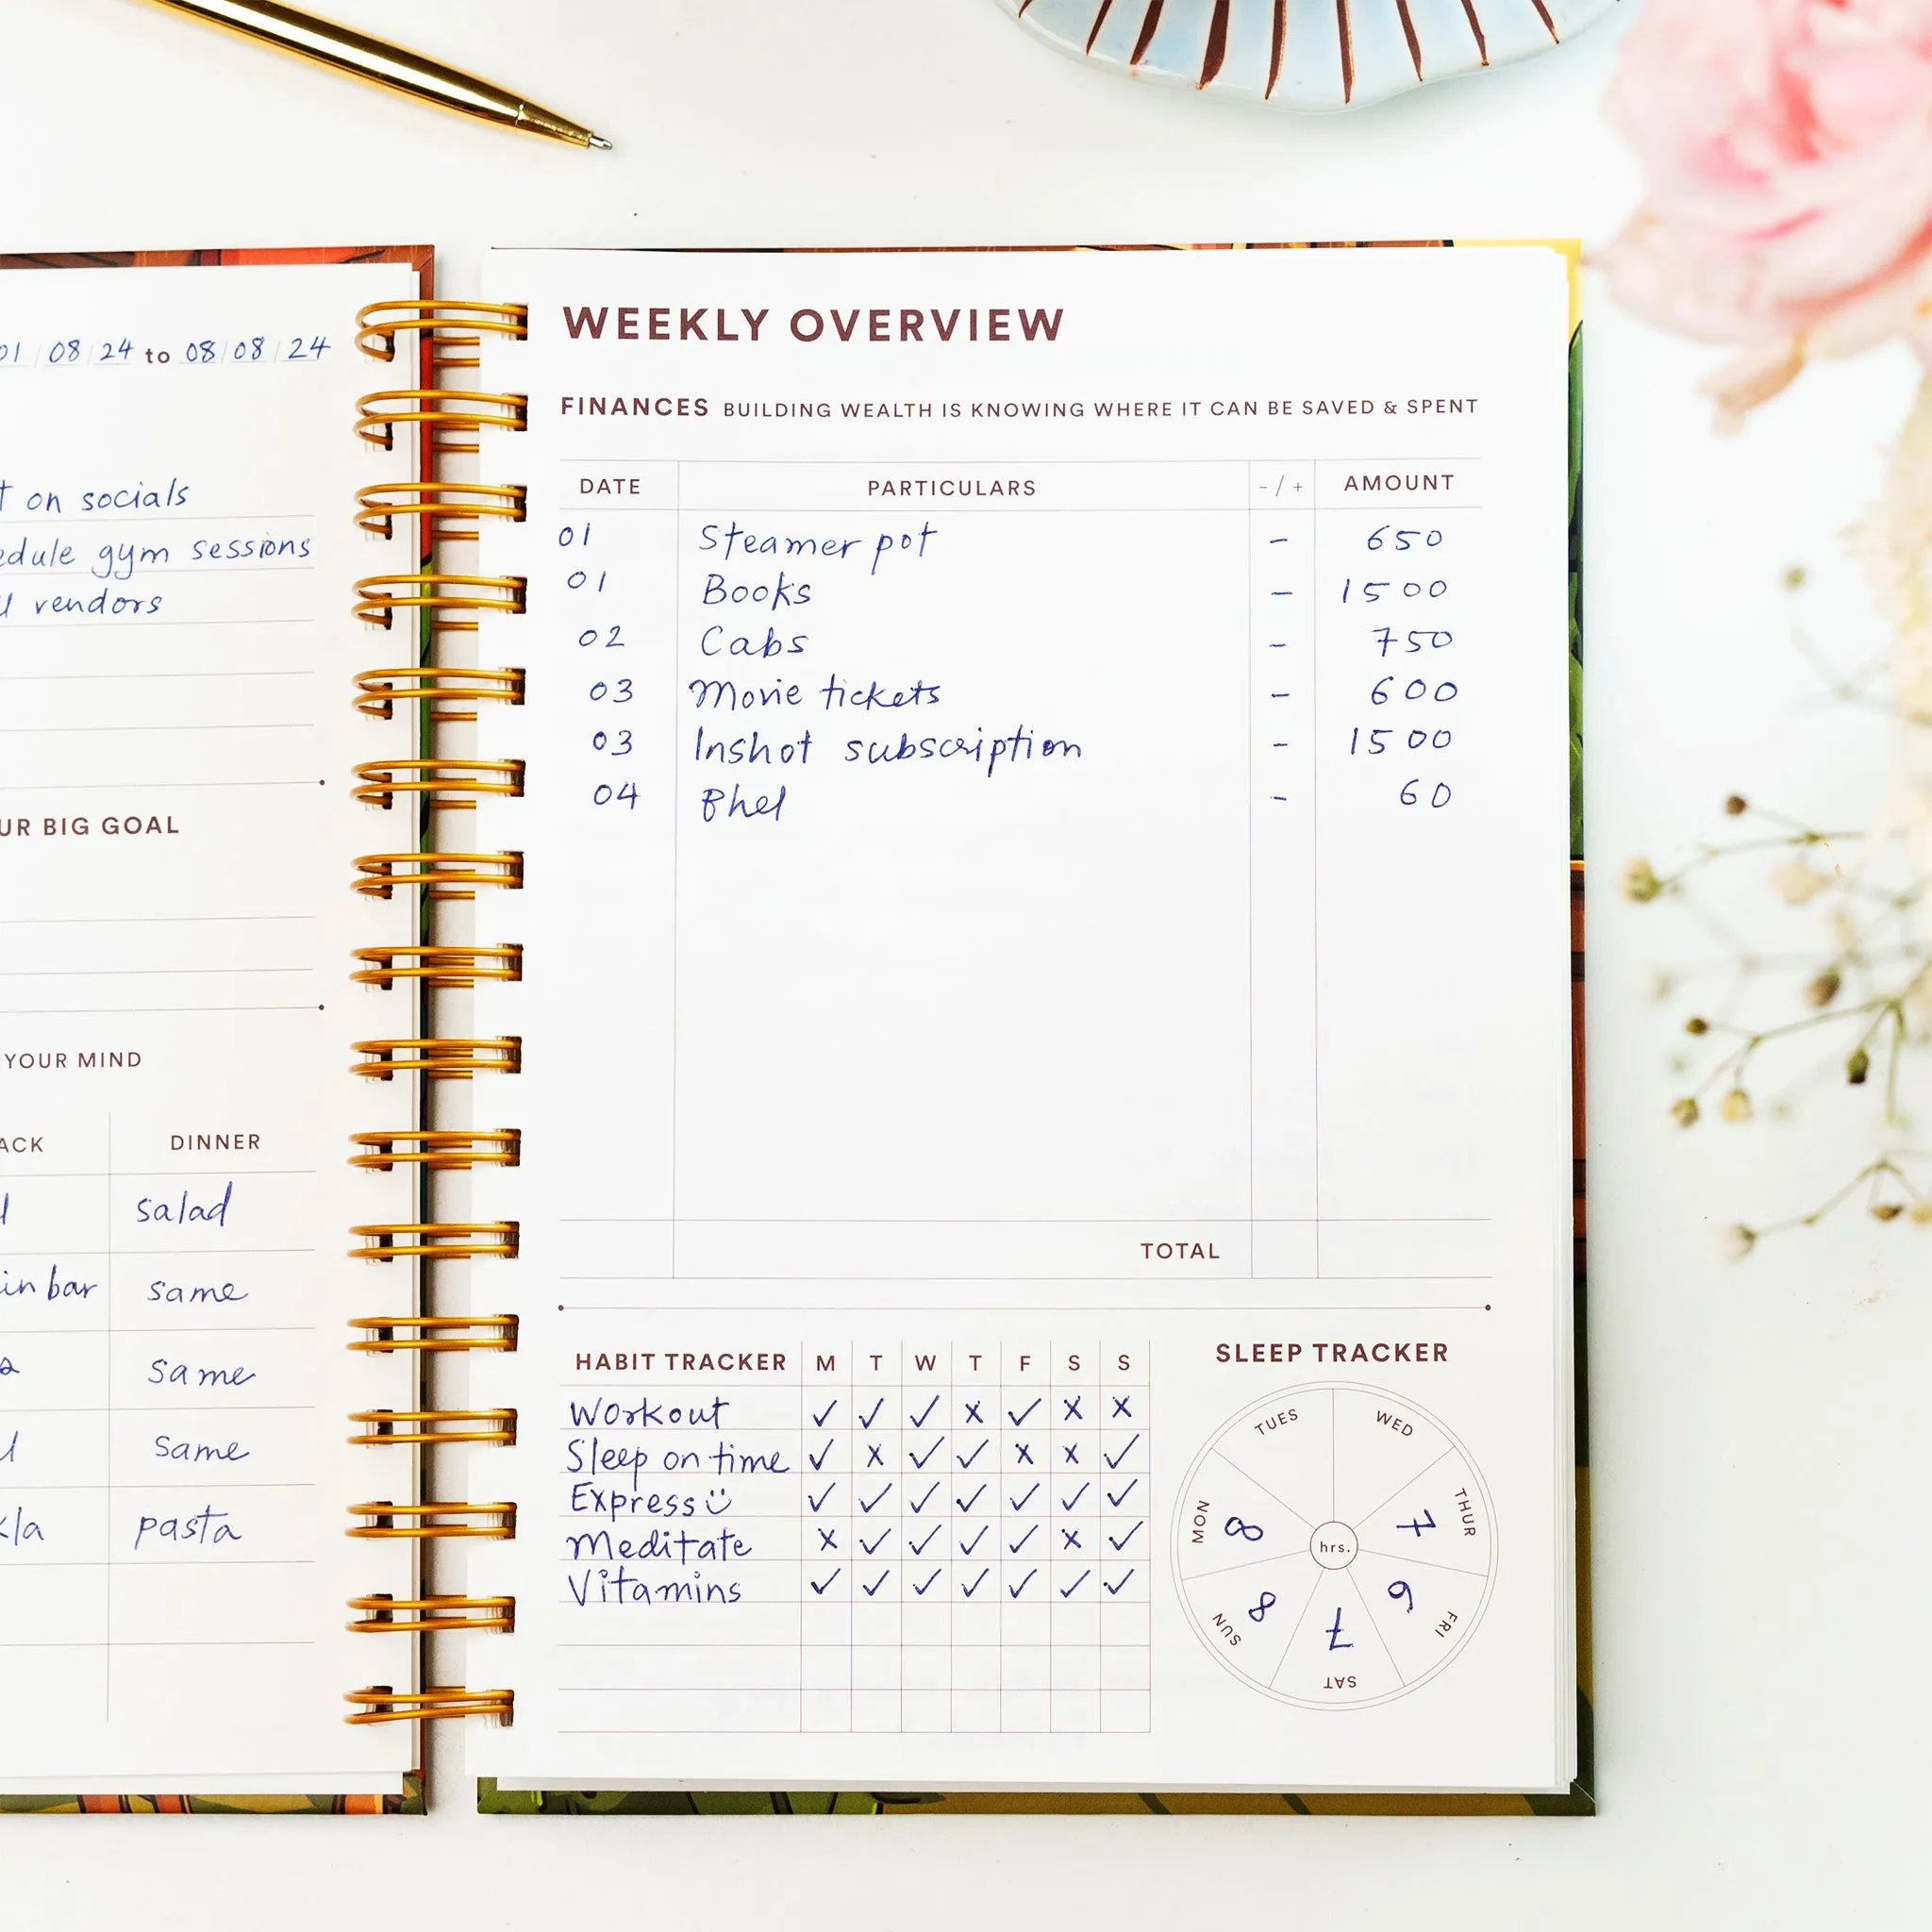 01 08 24 to 08 08 24
on socials
gym sessions
vendors
BIG GOAL
YOUR MIND
DINNER
salad
in bar same
same
same
pasta
WEEKLY OVERVIEW
FINANCES BUILDING WEALTH IS KNOWING WHERE IT CAN BE SAVED & SPENT
DATE PARTICULARS - / + AMOUNT
01 Steamer pot - 650
01 Books - 1500
02 Cabs - 750
03 Movie tickets - 600
03 Inshot subscription - 1500
04 Bhel - 60
TOTAL
HABIT TRACKER M T W T F S S
Workout ✓ ✓ ✓ x ✓ x x
Sleep on time ✓ x ✓ ✓ x x ✓
Express ✓ ✓ ✓ ✓ ✓ ✓ ✓
Meditate x ✓ ✓ ✓ ✓ x ✓
Vitamins ✓ ✓ ✓ ✓ ✓ ✓ ✓
SLEEP TRACKER
TUES
WED
THUR 7
FRI 6
SAT 7
SUN 8
MON 8
hrs.